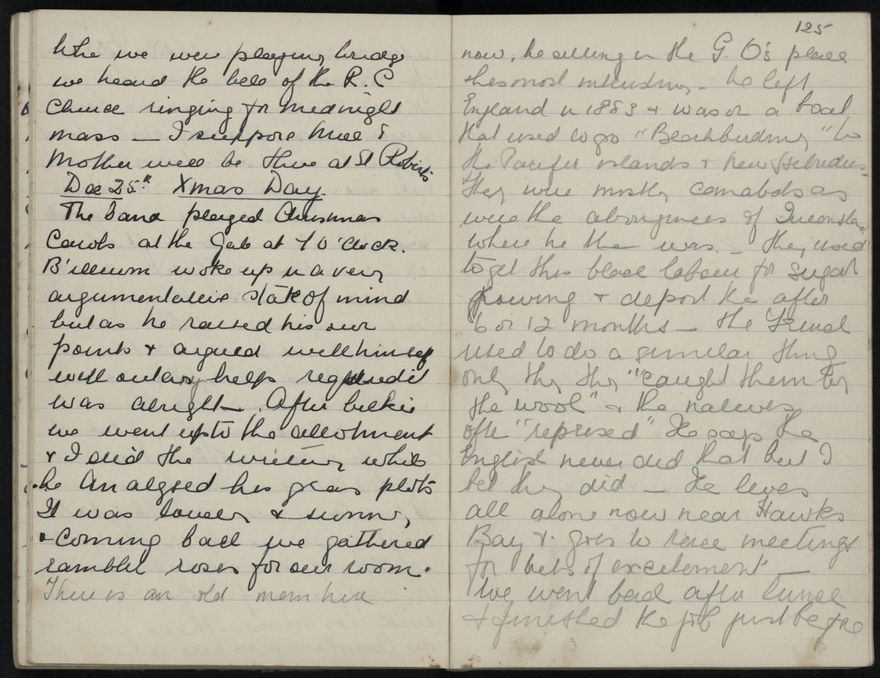 While we were playing bridge
we heard the bells of the R.C
Church ringing for midnight
mass — I suppose Mill &
Mother will be there at St Roberts
Dec 25th Xmas Day.
The band played Christmas
Carols at the Gate at 7 O'clock.
B'illeum woke up in a very
argumentative state of mind
but as he raised his own
points & argued with himself
without any help required it
was alright — After brekkie
we went up to the allotment
& I did the writing while
he Analysed his grass plots
It was lovely & sunny,
& coming back we gathered
rambler roses for our room.
There is an old man here
125
now, he is living in the G. O's place
& he's most interesting — he left
England in 1883 & was on a boat
that used to go "Blackbirding" to
the Pacific islands & New Hebrides —
They were mostly cannibals as
were the aborigines of Queensland
where he then was. — They used
to get this black labour for sugar
growing & deport them after
6 or 12 months — The French
used to do a similar thing
only they they "caught them by
the wool" & the natives
often "reprised" He says the
English never did that but I
bet they did — He lives
all alone now near Hawks
Bay & goes to race meetings
for bits of excitement —
We went back after lunch
& finished the job just before